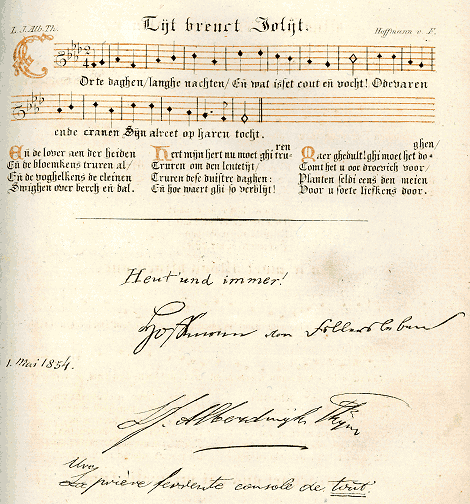 L. J. Alb. Th. Tijt brenct Jolijt. Hoffmann v. F.
Corte daghen/ langhe nachten/ En̄ wat isset cout en̄ vocht! Odevaren
ende cranen Sijn alreet op haren tocht.
En̄ de lover aen der heiden
En̄ de bloemkens truren al/
En̄ de voghelkens de cleinen
Swighen over berch en̄ dal.
Hert mijn hert nu moet ghi truren
Truren om den lentetijt/
Truren dese duistre daghen:
En̄ hoe waert ghi so verblijt!
Maer ghedult! ghi moet het doghen/
Comt het u oor droevich voor/
Planten seldi eens den meien
Voor u soete liefkens door.
Heut' und immer!
Hoffmann von Fallersleben
1. Mai 1854.
J. J. Alberdingk Thijm
La prière fervente console de tout